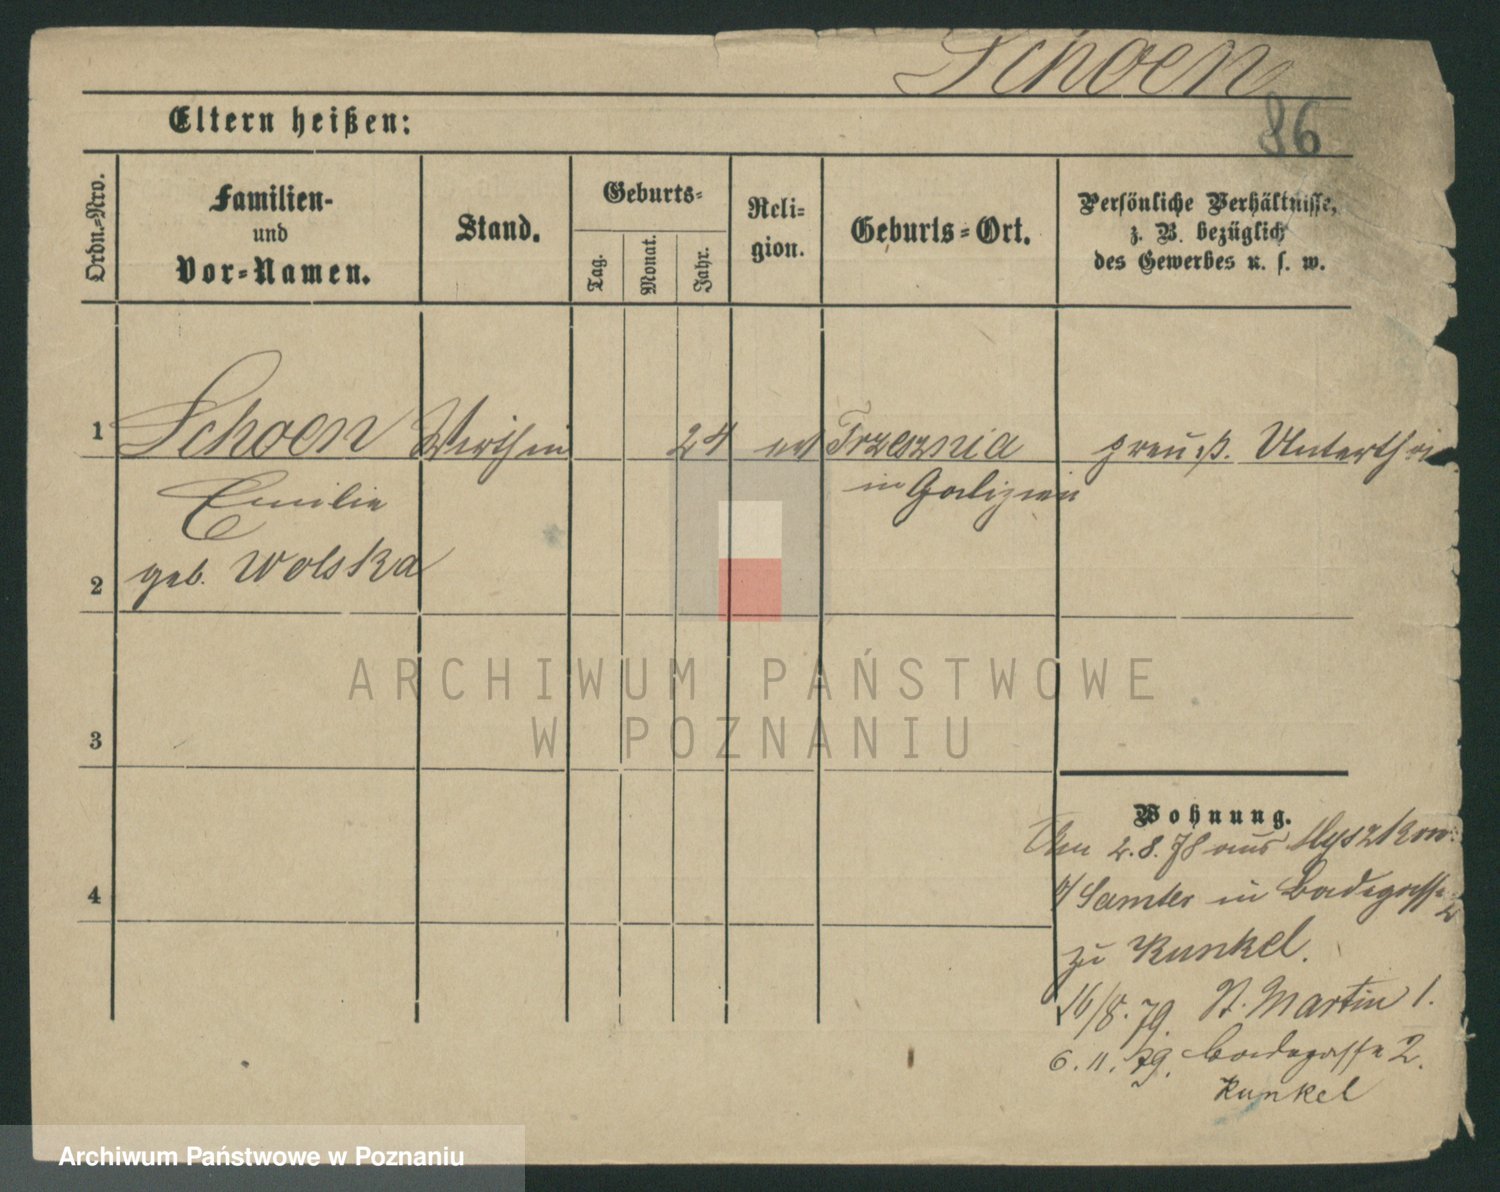 Schoen
86
Eltern heißen:
Ordn.-Nro.
Familien-
und
Vor-Namen.
Stand.
Geburts-
Tag.
Monat.
Jahr.
Reli-
gion.
Geburts-Ort.
Persönliche Verhältnisse,
z. B. bezüglich
des Gewerbes u. s. w.
1 Schoen Wirthin 24 ev Trzesznia preuß. Unterth
Emilie in Galizien
2 geb. Wolska
ARCHIWUM PAŃSTWOWE
W POZNANIU
3
Wohnung.
2.8.78 aus Myszkow
4
Samter in Badegasse 2
zu Kunkel.
16/8.79. St. Martin 1.
6.11.79. Badegasse 2.
Kunkel
Archiwum Państwowe w Poznaniu